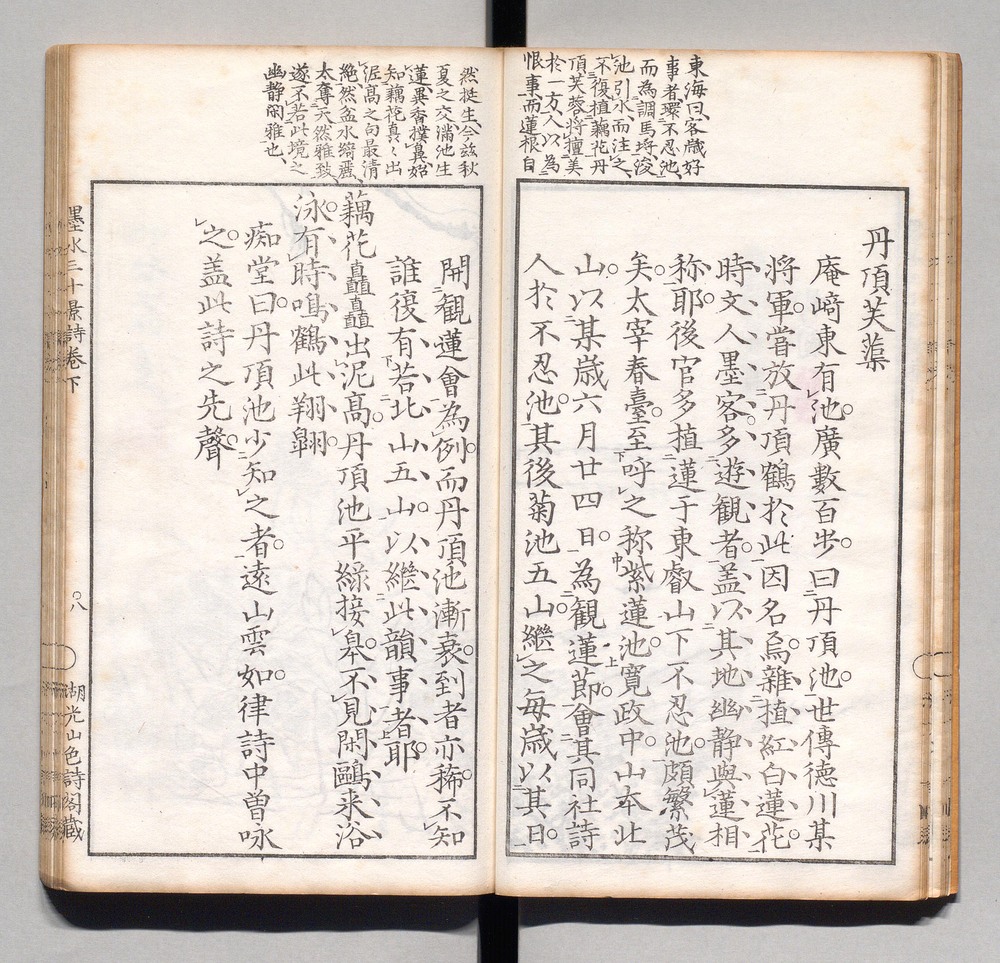 東海曰客歳好
事者環不忍池
而為調馬埒浚
池引水而注之
不復植藕花丹
頂芙蓉將擅美
於一方人以為
恨事而蓮根自
丹頂芙蕖
庵﨑東有池廣數百步曰丹頂池世傳徳川某
將軍嘗放丹頂鶴於此因名焉雜植紅白蓮花
時文人墨客多遊観者蓋以其地幽静與蓮相
称耶後官多植蓮于東叡山下不忍池頗繁茂
矣太宰春臺至呼之称紫蓮池寛政中山本北
山以某歳六月廿四日為観蓮節會其同社詩
人於不忍池其後菊池五山継之毎歳以其日
然挺生今茲秋
夏之交滿池生
蓮異香撲鼻始
知藕花真々出
泥高之句最清
絶然盆水綺麗
太奪天然雅致
遂不若此境之
幽静閑雅也
開観蓮會為例而丹頂池漸衰到者亦稀不知
誰復有若北山五山以継此韻事者耶
藕花矗矗出泥高丹頂池平緑接皐不見閑鷗来浴
泳有時鳴鶴此翔翺
痴堂曰丹頂池少知之者遠山雲如律詩中曽咏
之盖此詩之先聲
墨水三十景詩巻下
八
湖光山色詩閣蔵